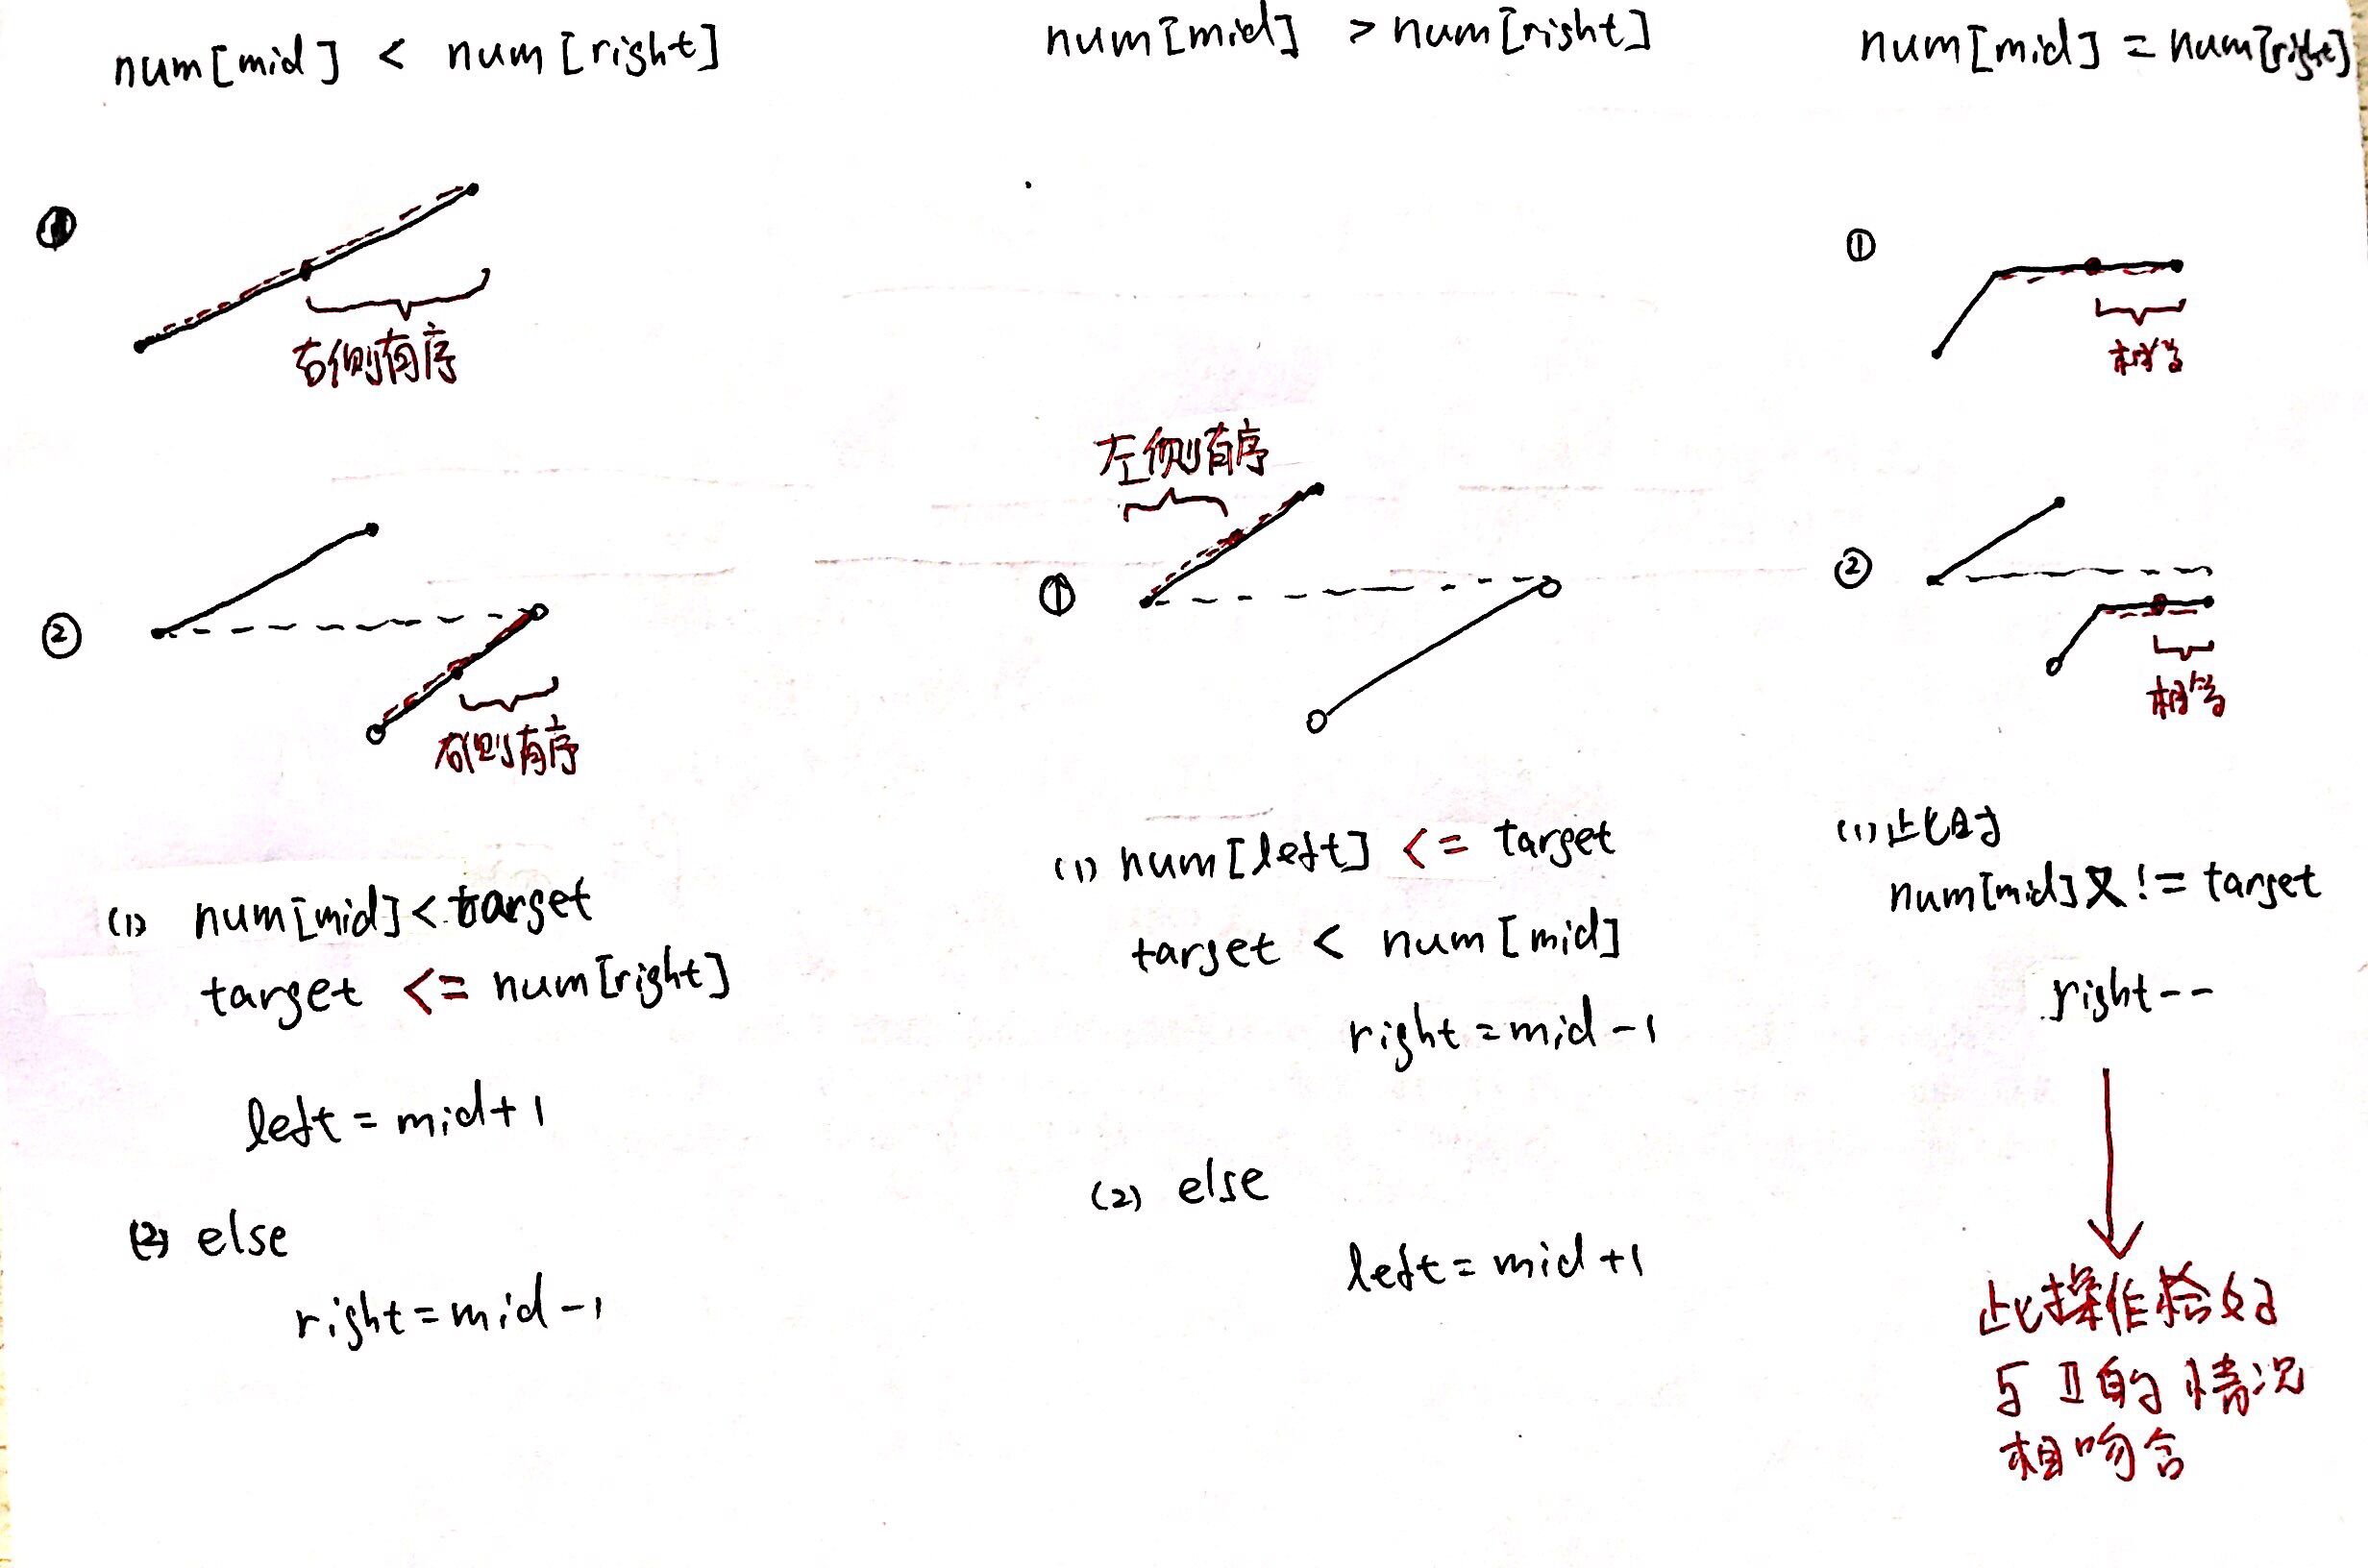 num[mid] < num[right]
①
右侧有序
②
右侧有序
(1) num[mid]<target
target <= num[right]
left = mid+1
(2) else
right=mid-1
num[mid] > num[right]
左侧有序
①
(1) num[left] <= target
target < num[mid]
right=mid-1
(2) else
left=mid+1
num[mid] = num[right]
①
相等
②
相等
(1) 此时
num[mid]又!= target
right--
此操作恰好
与II的情况
相吻合